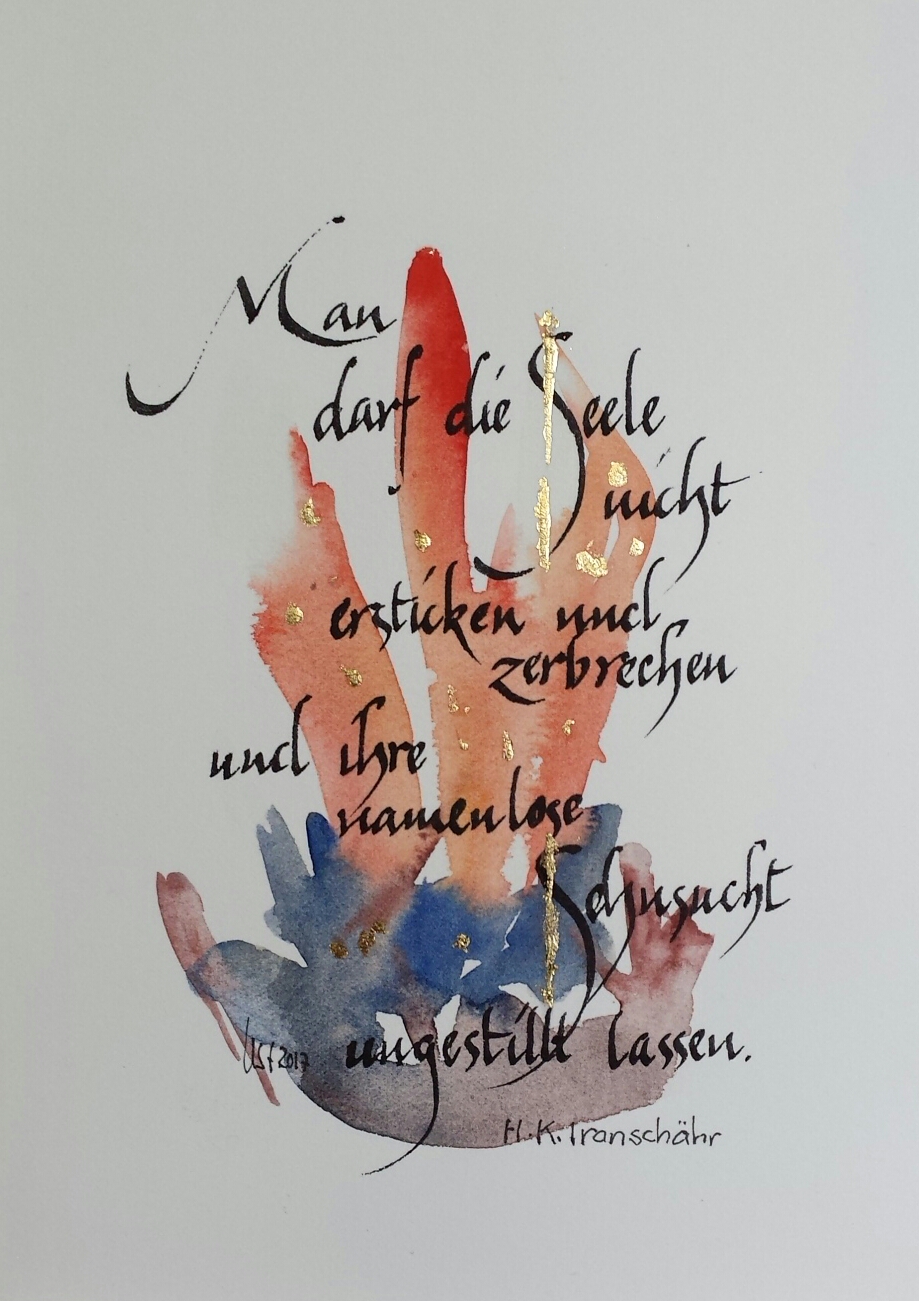 Man
darf die Seele
nicht
ersticken und
zerbrechen
und ihre
namenlose
Sehnsucht
ungestillt lassen.
Ust 2017
H.K. Iranschähr